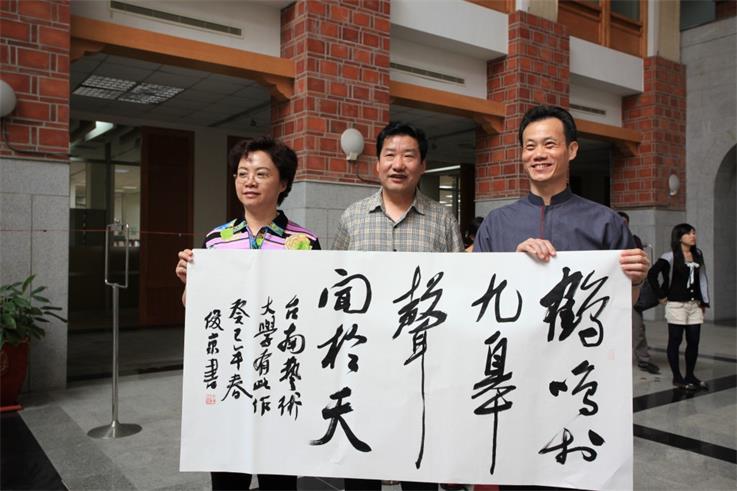 鶴鳴於
九皋
聲
聞於天
台南藝術
大學有此作
癸巳年春
俊京書